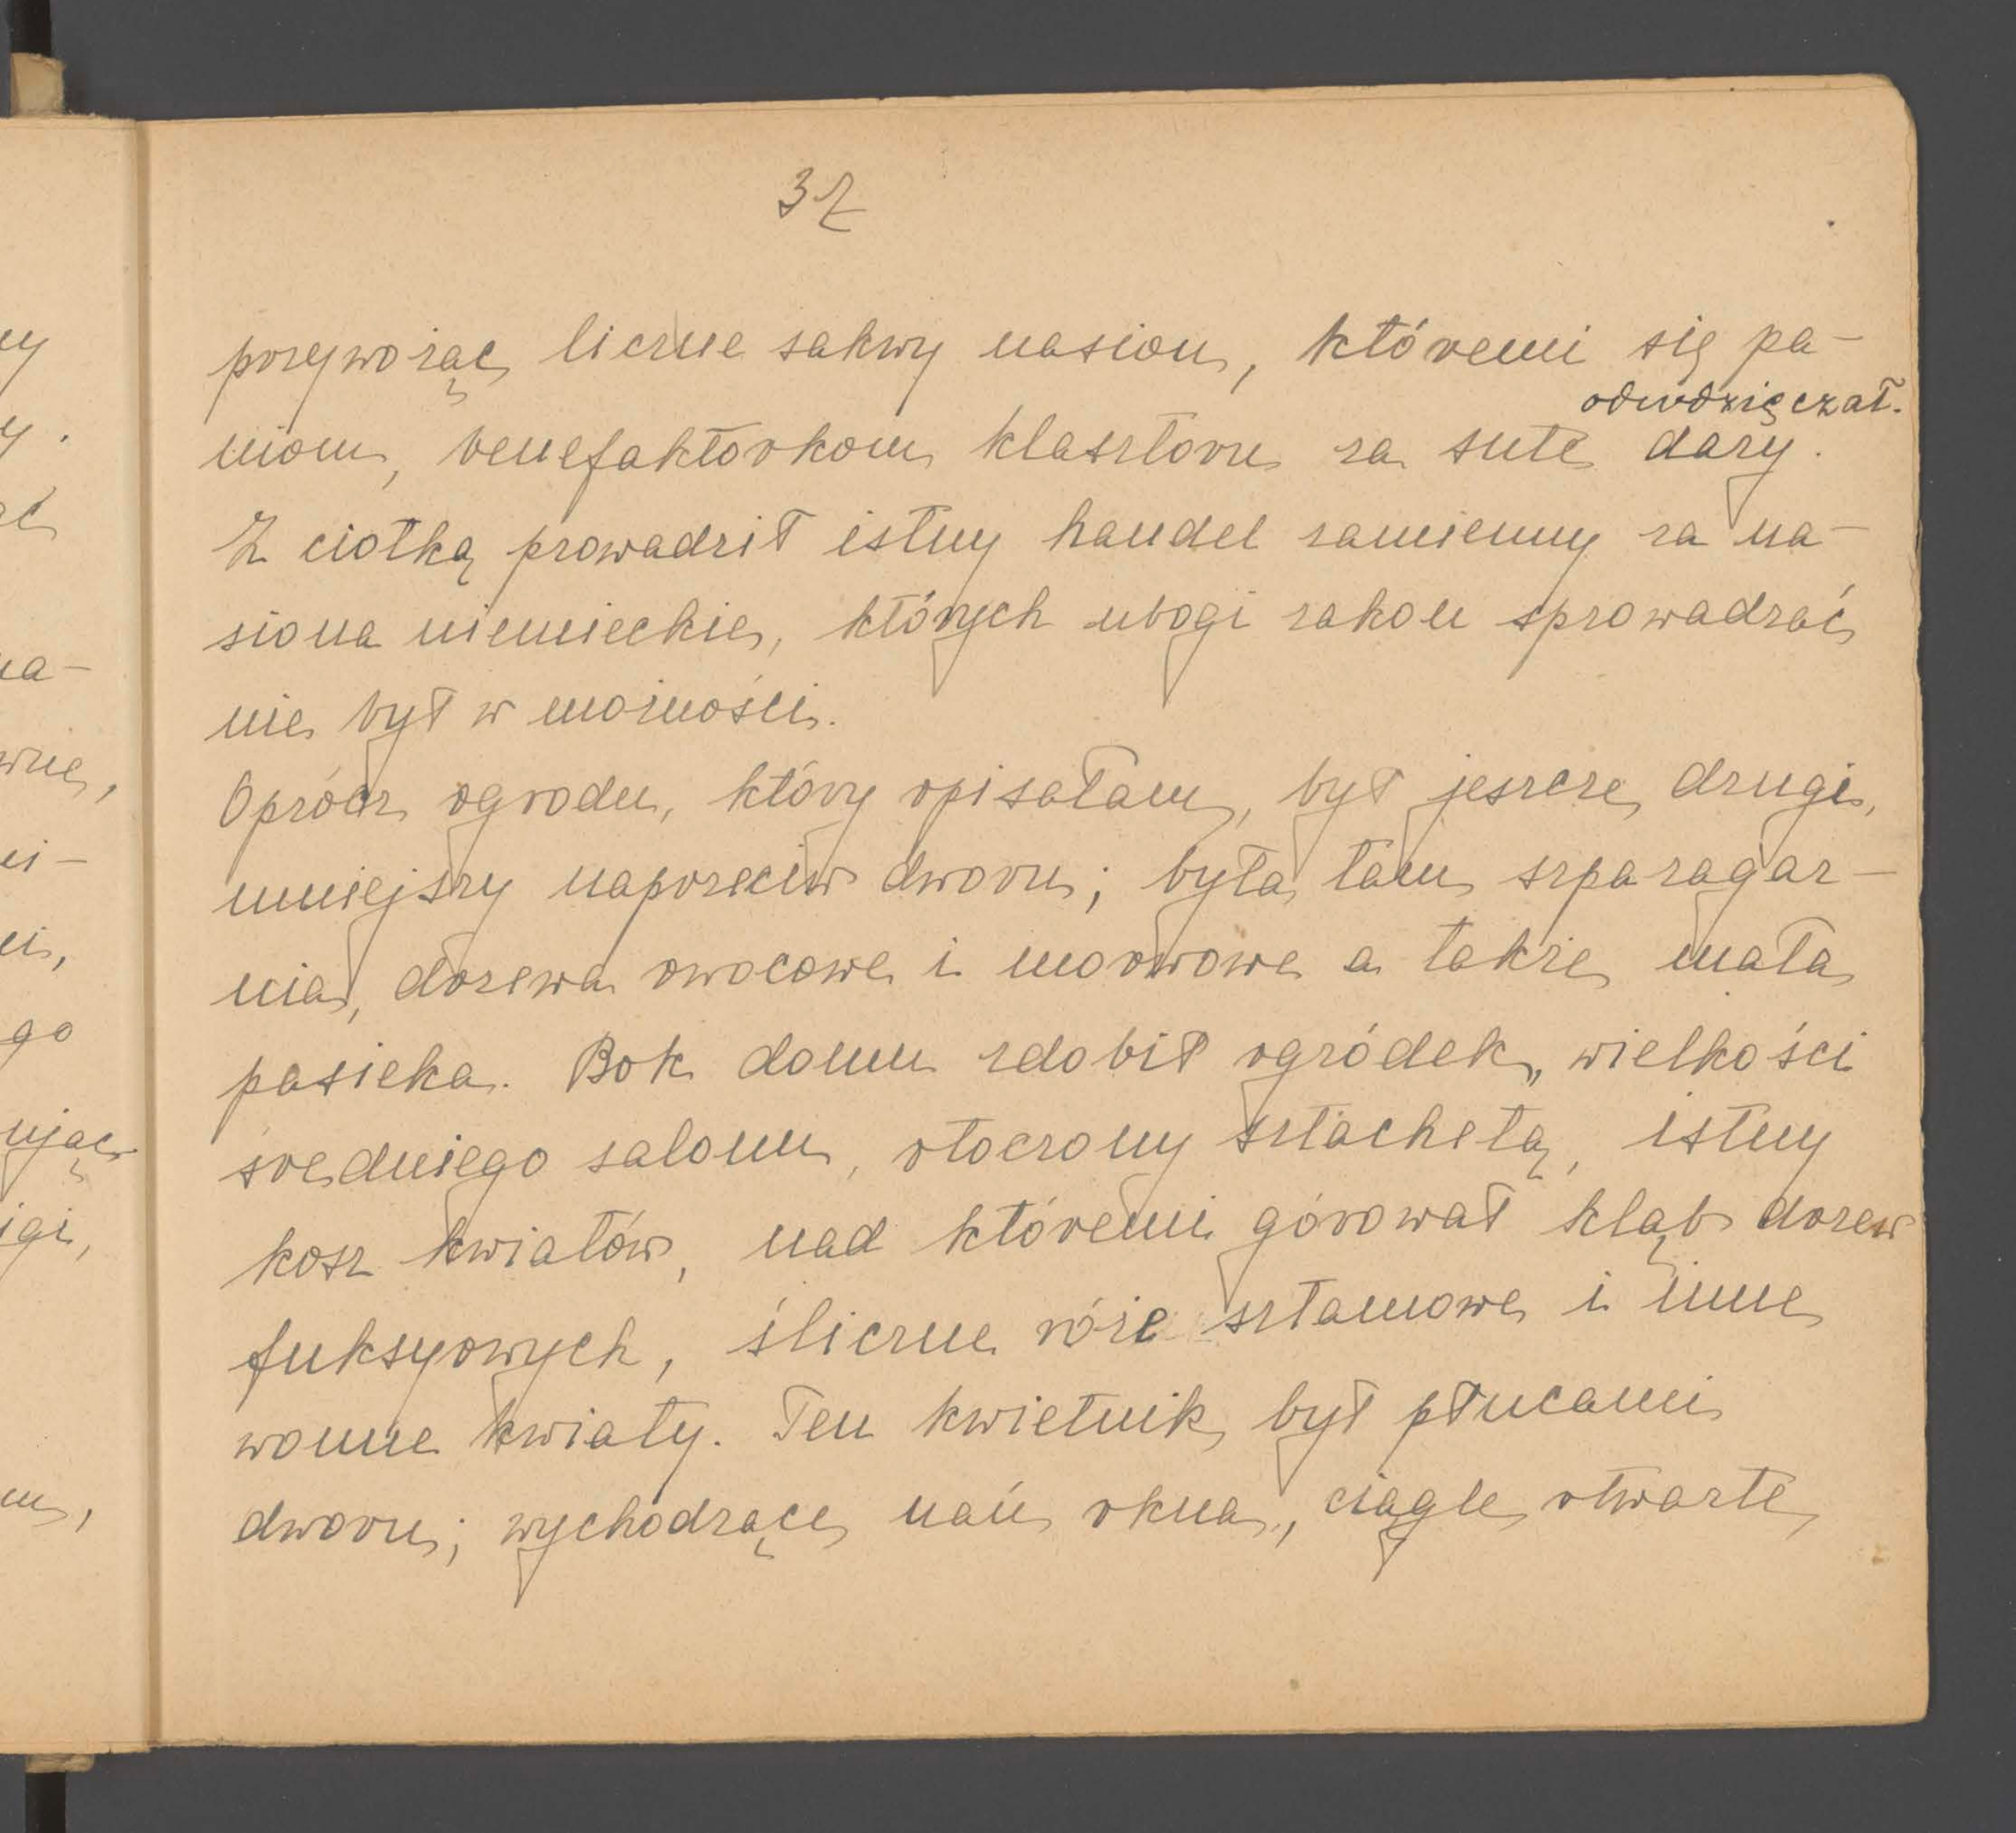 32
przywożąc liczne sakwy nasion, któremi się pa-
odwdzięczał.
niom, benefaktorkom klasztoru za sute dary.
Z ciotką prowadził istny handel zamienny za na-
siona niemieckie, których ubogi zakon sprowadzać
nie był w możności.
Oprócz ogrodu, który opisałam, był jeszcze drugi,
mniejszy naprzeciw dworu; była tam szparagar-
nia, drzewa owocowe i morwowe a także mała
pasieka. Bok domu zdobił ogródek, wielkości
średniego salonu, otoczony sztachetą, istny
kosz kwiatów, nad któremi górował kląb drzew
fuksyowych, śliczne róże sztamowe i inne
wonne kwiaty. Ten kwietnik był płucami
dworu; wychodzące nań okna, ciągle otwarte,
ny
y.
na-
wnie,
ni-
go
ując
igi,